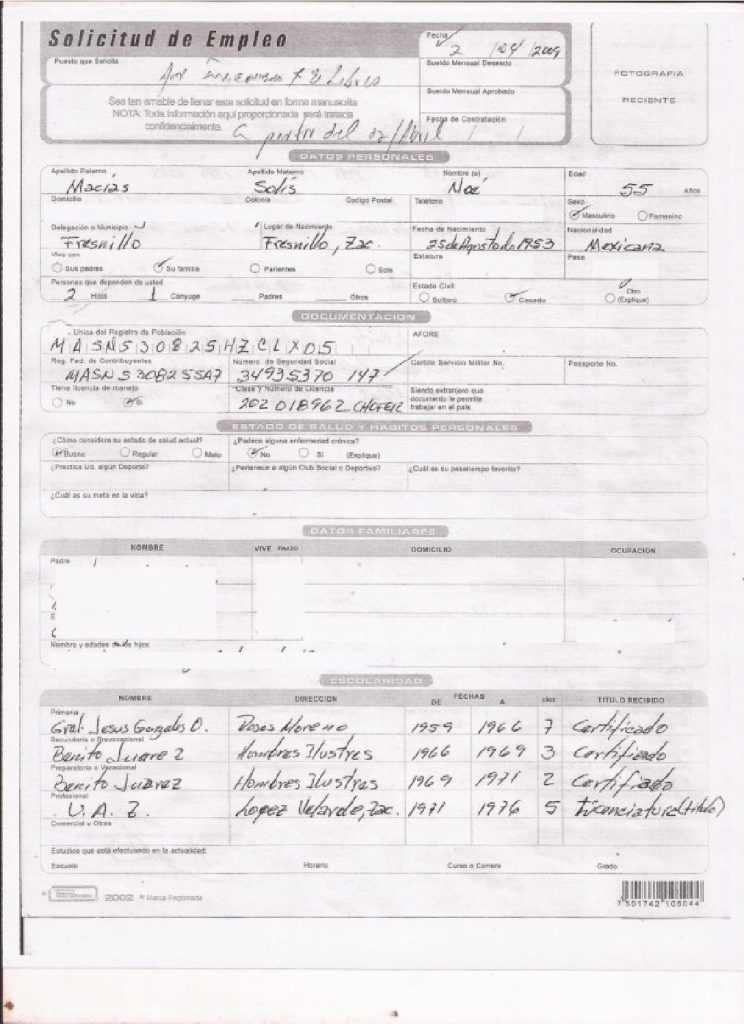 Solicitud de Empleo
Fecha
2 /04 /2009
Puesto que Solicita
Sueldo Mensual Deseado
FOTOGRAFIA
RECIENTE
Sueldo Mensual Aprobado
Sea tan amable de llenar esta solicitud en forma manuscrita
NOTA: Toda información aquí proporcionada será tratada
confidencialmente.
Fecha de Contratación
A partir del 02/Abril / /
DATOS PERSONALES
Apellido Paterno Apellido Materno Nombre (s) Edad
Macías Solís Noé 55 Años
Domicilio Colonia Codigo Postal Teléfono Sexo
Masculino Femenino
Delegación o Municipio Lugar de Nacimiento Fecha de Nacimiento Nacionalidad
Fresnillo Fresnillo, Zac. 25 de Agosto de 1953 Mexicana
Vive con Estatura Peso
Sus padres Su familia Parientes Solo
Personas que dependen de usted Estado Civil
2 Hijos 1 Cónyuge Padres Otros Soltero Casado Otro (Explique)
DOCUMENTACION
Unica del Registro de Población AFORE
MASN530825HZCLX05
Reg. Fed. de Contribuyentes Número de Seguridad Social Cartilla Servicio Militar No. Pasaporte No.
MASN530825SA7 34935370 147
Tiene licencia de manejo Clase y Número de Licencia Siendo extranjero que
documento le permite
trabajar en el país
No Si 202018962 CHOFER
ESTADO DE SALUD Y HABITOS PERSONALES
¿Cómo considera su estado de salud actual? ¿Padece alguna enfermedad crónica?
Bueno Regular Malo No Si (Explique)
¿Practica Ud. algún Deporte? ¿Pertenece a algún Club Social o Deportivo? ¿Cuál es su pasatiempo favorito?
¿Cuál es su meta en la vida?
DATOS FAMILIARES
NOMBRE VIVE FINADO DOMICILIO OCUPACION
Padre
Nombre y edades de los hijos
ESCOLARIDAD
NOMBRE DIRECCION FECHAS DE A AÑOS TITULO RECIBIDO
Primaria
Gral. Jesus Gonzalez O. Rosas Moreno 1959 1966 7 Certificado
Secundaria o Prevocacional
Benito Juarez Hombres Ilustres 1966 1969 3 Certificado
Preparatoria o Vocacional
Benito Juarez Hombres Ilustres 1969 1971 2 Certificado
Profesional
U. A. Z. Lopez Velarde, Zac. 1971 1976 5 Licenciatura (titulo)
Comercial u Otras
Estudios que está efectuando en la actualidad:
Escuela Horario Curso o Carrera Grado
2002 Marca Registrada
7 501742 105044